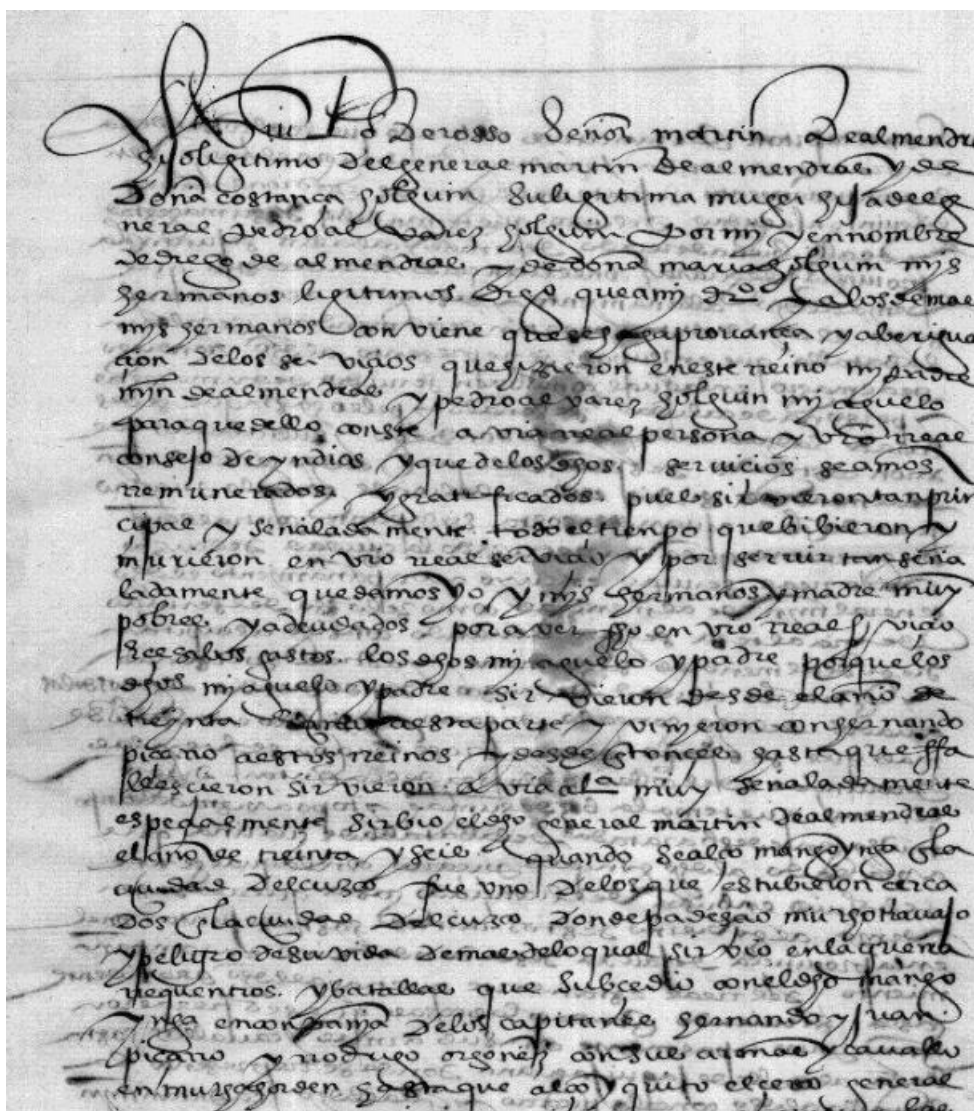 muy poderoso señor martin de almendras
hijo ligitimo del general martin de almendras y de
doña costança holguin su ligitima muger hija del ge
neral pedro alvarez holguin por mi y en nombre
de diego de almendras y de doña maria holguin mis
hermanos ligitimos digo que a mi dro y a los demas
mis hermanos conviene que se haga provança y aberigua
cion de los servicios que hizieron en este reino mi padre
min de almendras y pedro alvarez holguin mi aguelo
para que dello conste a vra real persona y vro rreal
consejo de yndias y que de los dhos servicios seamos
rremunerados y gratificados pues sirvieron tan prin
cipal y señaladamente todo el tiempo que bibieron y
murieron en vro rreal servicio y por servir tan seña
ladamente quedamos yo y mis hermanos y madre muy
pobres y adeudados por aver hho en vro rreal servicio
los gastos los dhos mi aguelo y padre porque los
dhos mi aguelo y padre sirvieron desde el año de
treynta a esta parte y vinieron con hernando
piçarro a estos rreinos y desde entonces hasta que ffa
llescieron sirvieron a vra al muy señaladamente
especialmente sirbio el dho general martin de almendras
el año de treinta y seis quando se alço mango ynga en la
ciudad del cuzco fue uno de los que estubieron cerca
dos en la ciudad del cuzco donde padescio mucho travajo
y peligro de su vida demas de lo qual sirvio en la guerra
rrequentros y batallas que subcedio con el dho mango
ynga en conpañia de los capitanes hernando y juan
piçarro y rrodrigo orgoñez con sus armas y cavallo
en mucha horden hasta que alço y quito el cerco general